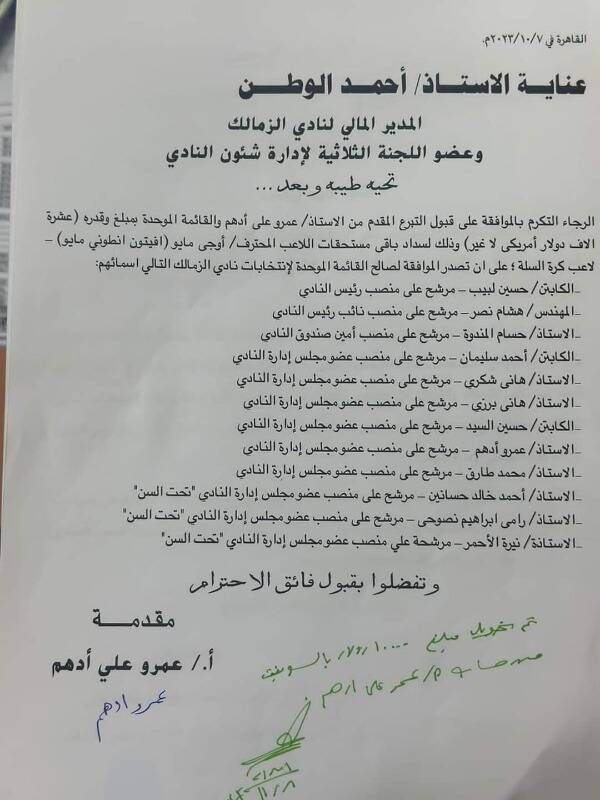 القاهرة في ٢٠٢٣/١٠/٧م.
عناية الاستاذ/ أحمد الوطن
المدير المالي لنادي الزمالك
وعضو اللجنة الثلاثية لإدارة شئون النادي
تحيه طيبه وبعد...
الرجاء التكرم بالموافقة على قبول التبرع المقدم من الاستاذ/ عمرو على أدهم والقائمة الموحدة بمبلغ وقدره (عشرة
الاف دولار أمريكى لا غير) وذلك لسداد باقى مستحقات اللاعب المحترف/ أوجى مايو (افيتون انطونى مايو) –
لاعب كرة السلة ؛ على ان تصدر الموافقة لصالح القائمة الموحدة لإنتخابات نادي الزمالك التالي اسمائهم:
_الكابتن/ حسين لبيب – مرشح على منصب رئيس النادي
_المهندس/ هشام نصر – مرشح على منصب نائب رئيس النادي
_الاستاذ/ حسام المندوة – مرشح على منصب أمين صندوق النادي
_الكابتن/ أحمد سليمان – مرشح على منصب عضو مجلس إدارة النادي
_الاستاذ/ هانى شكرى – مرشح على منصب عضو مجلس إدارة النادي
_الاستاذ/ هانى برزي – مرشح على منصب عضو مجلس إدارة النادي
_الكابتن/ حسين السيد – مرشح على منصب عضو مجلس إدارة النادي
_الاستاذ/ عمرو أدهم – مرشح على منصب عضو مجلس إدارة النادي
_الاستاذ/ محمد طارق – مرشح على منصب عضو مجلس إدارة النادي
_الاستاذ/ أحمد خالد حسانين – مرشح على منصب عضو مجلس إدارة النادي "تحت السن"
_الاستاذ/ رامى ابراهيم نصوحى – مرشح على منصب عضو مجلس إدارة النادي "تحت السن"
_الاستاذة/ نيرة الأحمر – مرشحة علي منصب عضو مجلس إدارة النادي "تحت السن"
وتفضلوا بقبول فائق الاحترام
مقدمة
أ./ عمرو علي أدهم
عمرو ادهم
تم تحويل مبلغ ١٠٠٠٠ دولار بالسويفت
من حساب م/ عمرو على ادهم